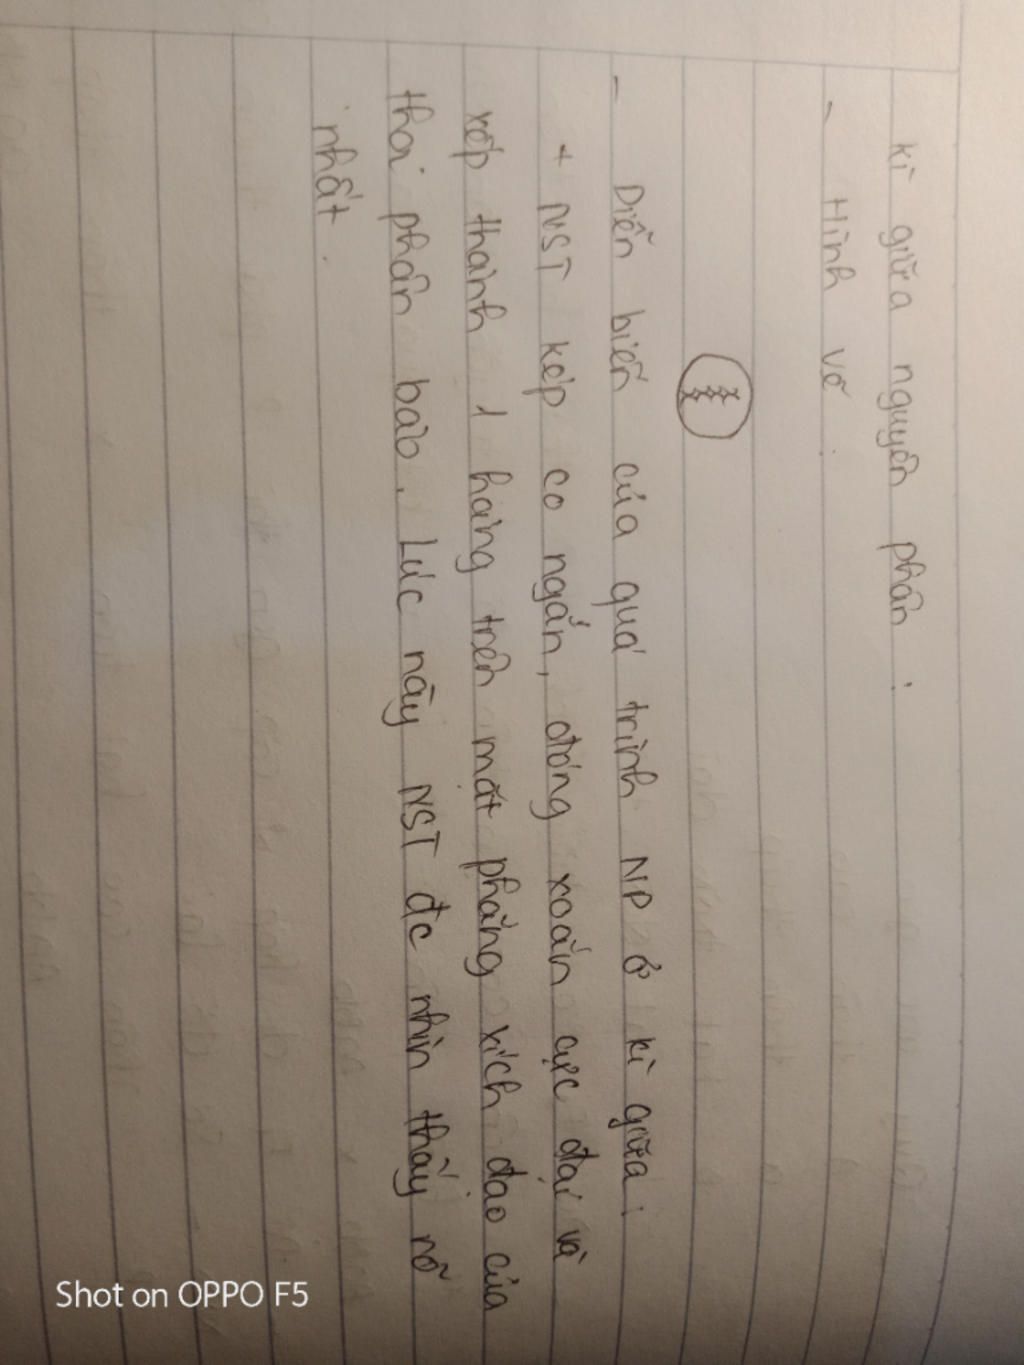 kì giữa nguyên phân :
- Hình vẽ :
- Diễn biến của quá trình NP ở kì giữa :
+ NST kép co ngắn, đóng xoắn cực đại và
xếp thành 1 hàng trên mặt phẳng xích đạo của
thoi phân bào. Lúc này NST đc nhìn thấy rõ
nhất.
Shot on OPPO F5